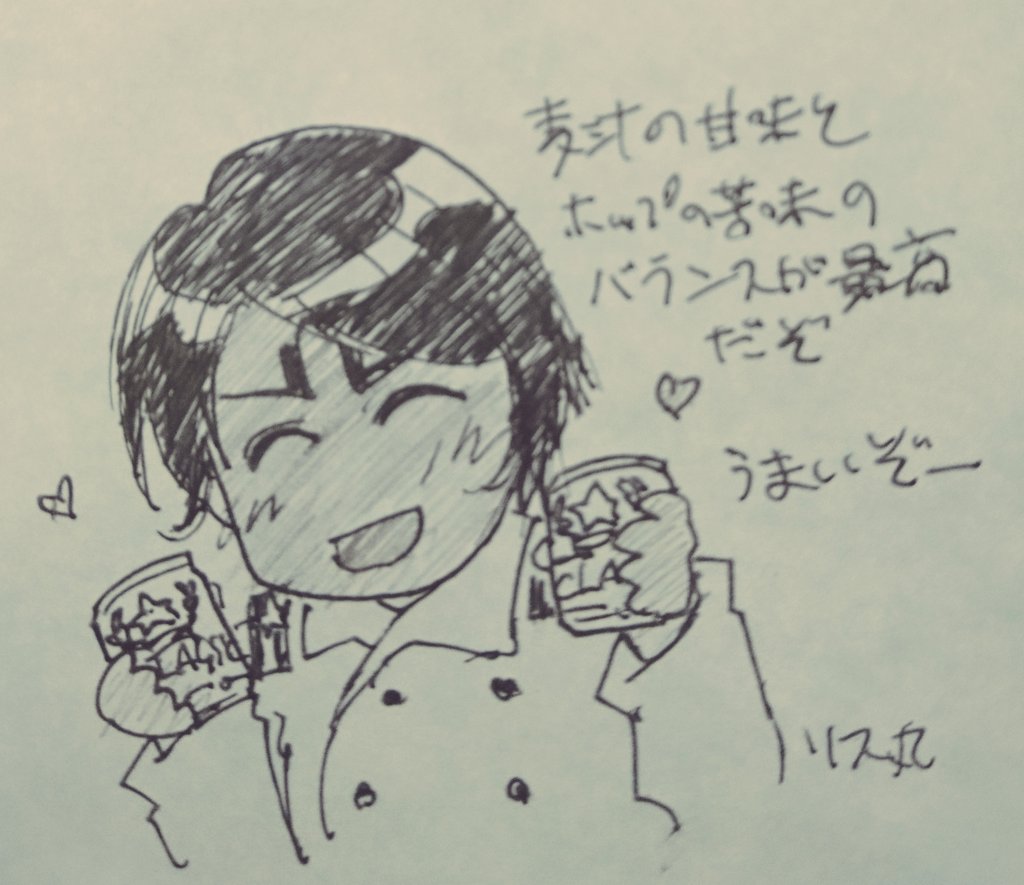 麦汁の甘味と
ホップの苦味の
バランスが最高
だぞ
うまいぞー
CLA
リス丸